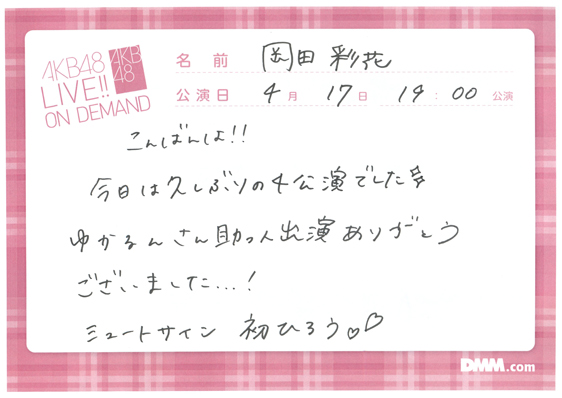 AKB48
LIVE!!
ON DEMAND
AKB
48
名前 岡田彩花
公演日 4月17日 19:00 公演
こんばんは!!
今日は久しぶりの4公演でした
ゆかるんさん助っ人出演ありがとう
ございました...!
ミュートサイン 初ひろう♡
DMM.com